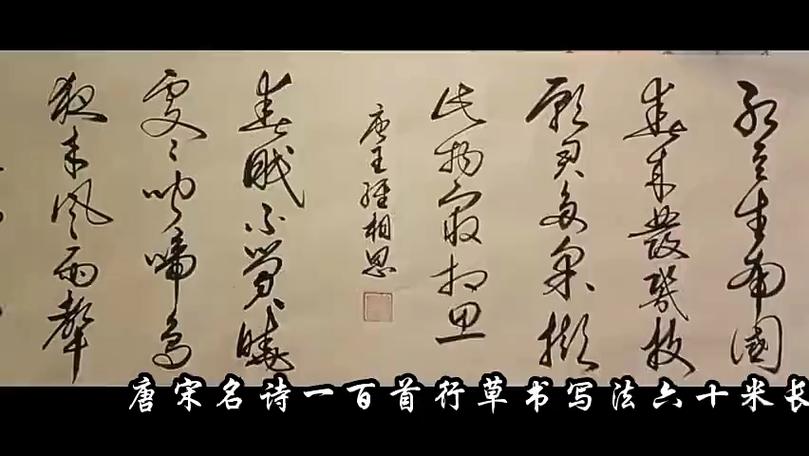 红豆生南國
春来發幾枝
願君多采撷
此物最相思
唐王维相思
春眠不覺曉
處々闻啼鸟
夜来风雨聲
唐宋名诗一百首行草书写法六十米长